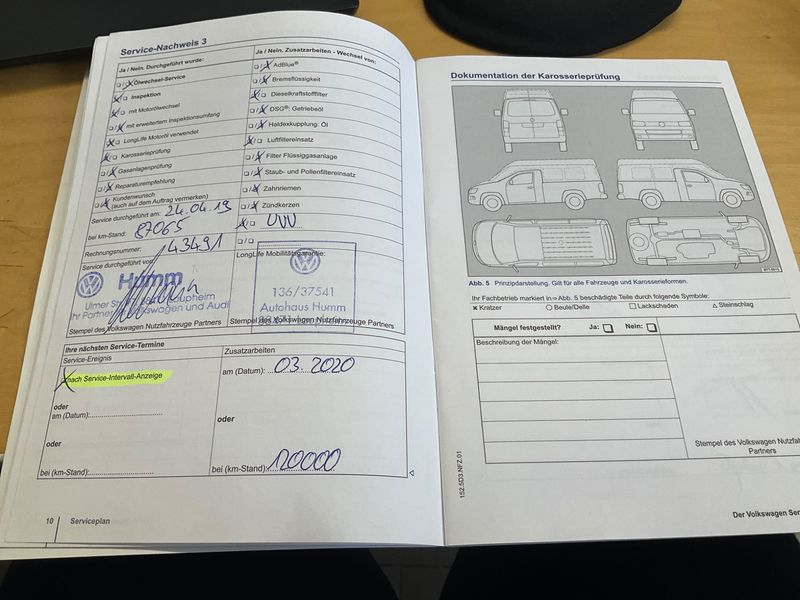 Service-Nachweis 3
Ja / Nein. Durchgeführt wurde:
Ölwechsel-Service
Inspektion
mit Motorölwechsel
mit erweitertem Inspektionsumfang
LongLife Motoröl verwendet
Karosserieprüfung
Gasanlagenprüfung
Reparaturempfehlung
Kundenwunsch
(auch auf dem Auftrag vermerken)
Service durchgeführt am: 24.04.19
bei km-Stand: 87065
Rechnungsnummer: 43491
Service durchgeführt von:
Humm
Ulmer
Laupheim
Ihr Partner
Volkswagen und Audi
Stempel des Volkswagen Nutzfahrzeuge Partners
Ja / Nein. Zusatzarbeiten - Wechsel von:
AdBlue®
Bremsflüssigkeit
Dieselkraftstofffilter
DSG®: Getriebeöl
Haldexkupplung: Öl
Luftfiltereinsatz
Filter Flüssiggasanlage
Staub- und Pollenfiltereinsatz
Zahnriemen
Zündkerzen
UVV
LongLife Mobilitätsgarantie:
136/37541
Autohaus Humm
Stempel des Volkswagen Nutzfahrzeuge Partners
Ihre nächsten Service-Termine
Service-Ereignis
nach Service-Intervall-Anzeige
oder
am (Datum):
oder
bei (km-Stand):
Zusatzarbeiten
am (Datum): 03.2020
oder
bei (km-Stand): 120000
10 Serviceplan
Dokumentation der Karosserieprüfung
Abb. 5 Prinzipdarstellung. Gilt für alle Fahrzeuge und Karosserieformen.
Ihr Fachbetrieb markiert in ⇒ Abb. 5 beschädigte Teile durch folgende Symbole:
× Kratzer ○ Beule/Delle □ Lackschaden △ Steinschlag
Mängel festgestellt? Ja: Nein:
Beschreibung der Mängel:
Stempel des Volkswagen Nutzfahrzeuge
Partners
152.5D3.NFZ.01
Der Volkswagen Ser